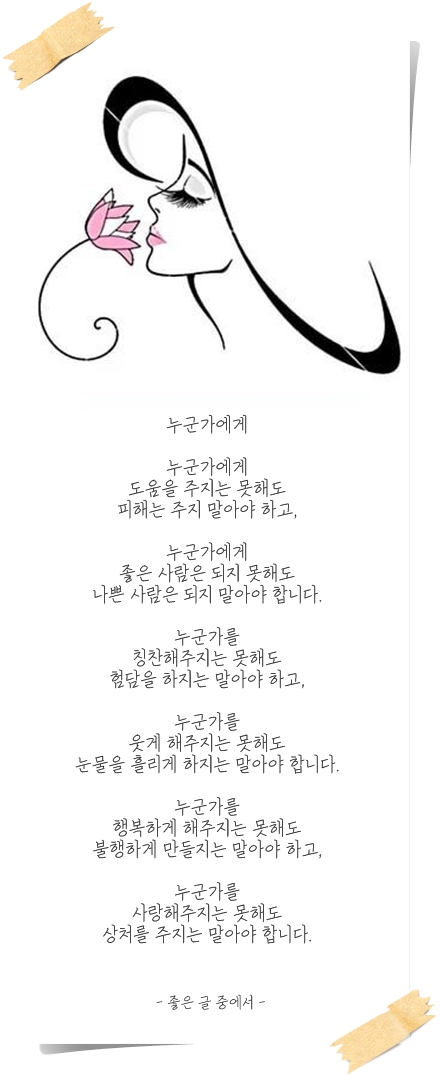 누군가에게
누군가에게
도움을 주지는 못해도
피해는 주지 말아야 하고,
누군가에게
좋은 사람은 되지 못해도
나쁜 사람은 되지 말아야 합니다.
누군가를
칭찬해주지는 못해도
험담을 하지는 말아야 하고,
누군가를
웃게 해주지는 못해도
눈물을 흘리게 하지는 말아야 합니다.
누군가를
행복하게 해주지는 못해도
불행하게 만들지는 말아야 하고,
누군가를
사랑해주지는 못해도
상처를 주지는 말아야 합니다.
- 좋은 글 중에서 -